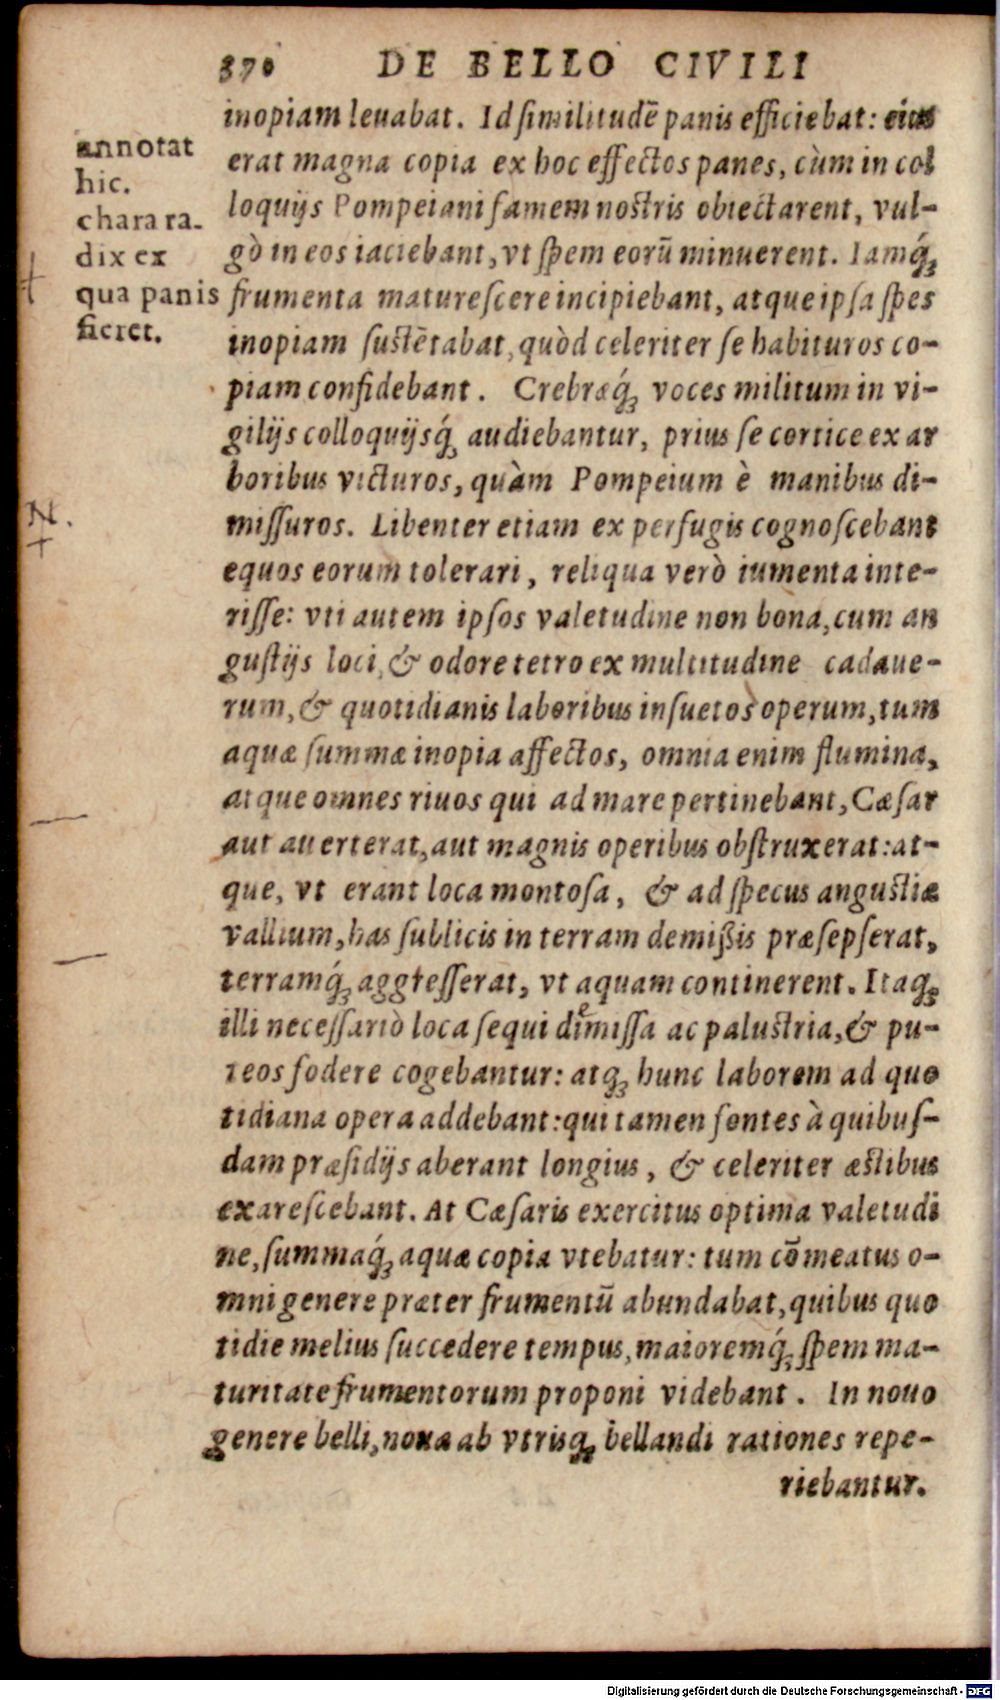 370 DE BELLO CIVILI
annotat
hic.
chara ra-
dix ex
qua panis
fieret.
inopiam leuabat. Id ſimilitudē panis efficiebat: eius
erat magna copia ex hoc effectos panes, cùm in col
loquijs Pompeiani famem noſtris obiectarent, vul-
gò in eos iaciebant, vt ſpem eorū minuerent. Iamq́;
frumenta matureſcere incipiebant, atque ipſa ſpes
inopiam ſuſtētabat, quòd celeriter ſe habituros co-
piam confidebant. Crebræq́; voces militum in vi-
gilijs colloquijsq́; audiebantur, prius ſe cortice ex ar
boribus victuros, quàm Pompeium è manibus di-
miſſuros. Libenter etiam ex perfugis cognoſcebant
equos eorum tolerari, reliqua verò iumenta inte-
riſſe: vti autem ipſos valetudine non bona, cum an
guſtijs loci, & odore tetro ex multitudine cadaue-
rum, & quotidianis laboribus inſuetos operum, tum
aquæ ſummæ inopia affectos, omnia enim flumina,
atque omnes riuos qui ad mare pertinebant, Cæſar
aut auerterat, aut magnis operibus obſtruxerat: at-
que, vt erant loca montoſa, & ad ſpecus anguſtiæ
vallium, has ſublicis in terram demißis præſepſerat,
terramq́; aggreſſerat, vt aquam continerent. Itaq;
illi neceſſariò loca ſequi dimiſſa ac paluſtria, & pu-
teos fodere cogebantur: atq; hunc laborem ad quo
tidiana opera addebant: qui tamen fontes à quibuſ-
dam præſidijs aberant longius, & celeriter æſtibus
exareſcebant. At Cæſaris exercitus optima valetudi
ne, ſummaq́; aquæ copia vtebatur: tum cōmeatus o-
mni genere præter frumentū abundabat, quibus quo
tidie melius ſuccedere tempus, maioremq́; ſpem ma-
turitate frumentorum proponi videbant. In nouo
genere belli, nouæ ab vtrisq; bellandi rationes repe-
riebantur.
N.
e
Digitalisierung gefördert durch die Deutsche Forschungsgemeinschaft - DFG